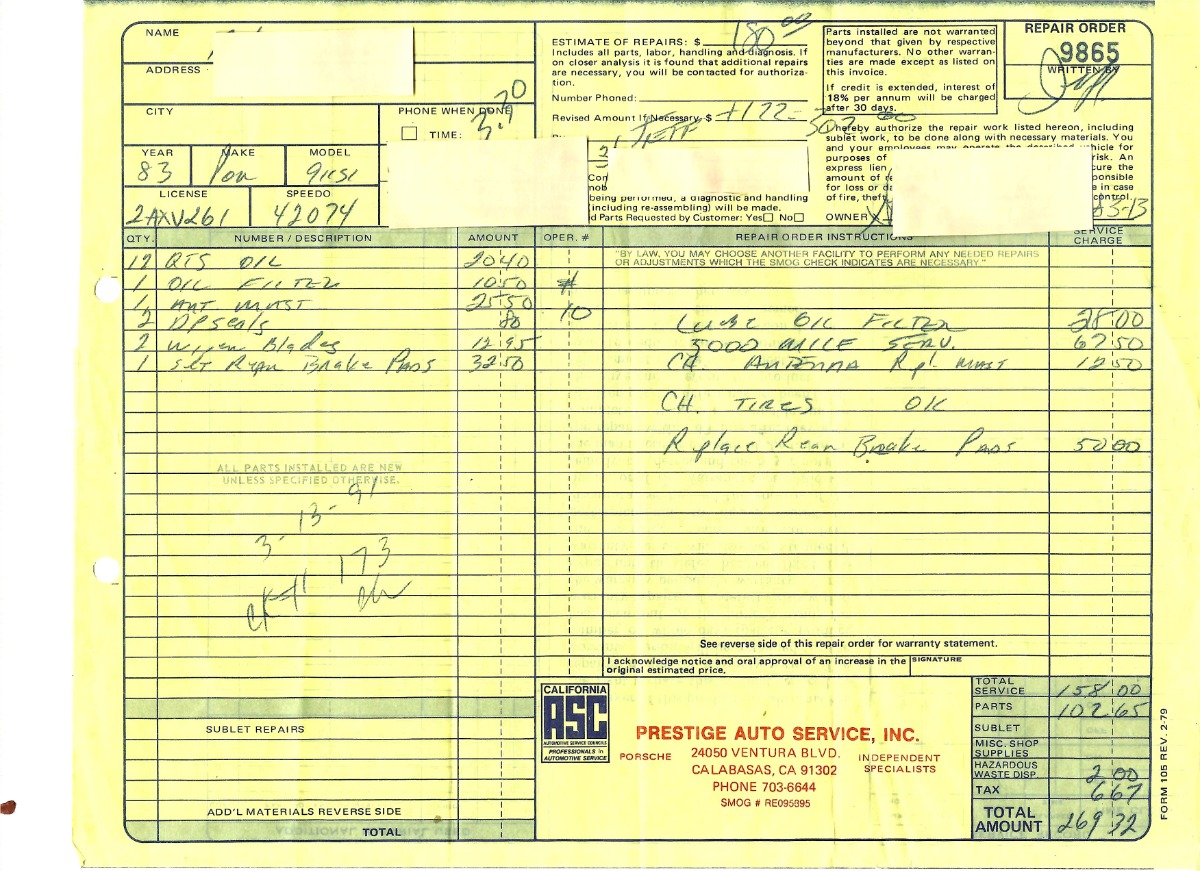 NAME
ESTIMATE OF REPAIRS: $ 180 00
Includes all parts, labor, handling and diagnosis. If
on closer analysis it is found that additional repairs
are necessary, you will be contacted for authoriza-
tion.
Number Phoned:
Revised Amount If Necessary $ +122 - 302 00
JEFF
Parts installed are not warranted
beyond that given by respective
manufacturers. No other warran-
ties are made except as listed on
this invoice.
If credit is extended, interest of
18% per annum will be charged
after 30 days.
REPAIR ORDER
9865
WRITTEN BY
ADDRESS
CITY
PHONE WHEN DONE
TIME:
I hereby authorize the repair work listed hereon, including
sublet work, to be done along with necessary materials. You
and your employees may operate the described vehicle for
purposes of
risk. An
express lien
cure the
amount of
ponsible
for loss or
e in case
of fire, theft
control.
OWNER X
3-13
being performed, a diagnostic and handling
(including re-assembling) will be made.
d Parts Requested by Customer: Yes No
YEAR MAKE MODEL
83 Por 911SC
LICENSE SPEEDO
2AXV261 42074
QTY. NUMBER / DESCRIPTION AMOUNT OPER. # REPAIR ORDER INSTRUCTIONS SERVICE CHARGE
"BY LAW, YOU MAY CHOOSE ANOTHER FACILITY TO PERFORM ANY NEEDED REPAIRS
OR ADJUSTMENTS WHICH THE SMOG CHECK INDICATES ARE NECESSARY."
12 QTS OIL 20 40
1 OIL FILTER 10 50 #
1 ANT MAST 25 50 10
2 DP Seals 80 Lube OIL FILTER 28 00
2 Wiper Blades 12 95 5000 MILE SERV. 67 50
1 Set Rear Brake Pads 32 50 CH. ANTENNA Rpl MAST 12 50
CH. TIRES OK
Replace Rear Brake Pads 50 00
ALL PARTS INSTALLED ARE NEW
UNLESS SPECIFIED OTHERWISE.
3-13-91
CK# 173
See reverse side of this repair order for warranty statement.
I acknowledge notice and oral approval of an increase in the
original estimated price.
SIGNATURE
SUBLET REPAIRS
ADD'L MATERIALS REVERSE SIDE
TOTAL
CALIFORNIA
ASC
AUTOMOTIVE SERVICE COUNCILS
PROFESSIONALS in
AUTOMOTIVE SERVICE
PRESTIGE AUTO SERVICE, INC.
PORSCHE 24050 VENTURA BLVD. INDEPENDENT
CALABASAS, CA 91302 SPECIALISTS
PHONE 703-6644
SMOG # RE095895
TOTAL SERVICE 158 00
PARTS 102 65
SUBLET
MISC. SHOP SUPPLIES
HAZARDOUS WASTE DISP. 2 00
TAX 6 67
TOTAL AMOUNT 269 32
FORM 105 REV. 2-79